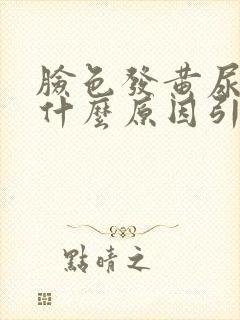 臉色發黃尿
什麼原因引
點晴之